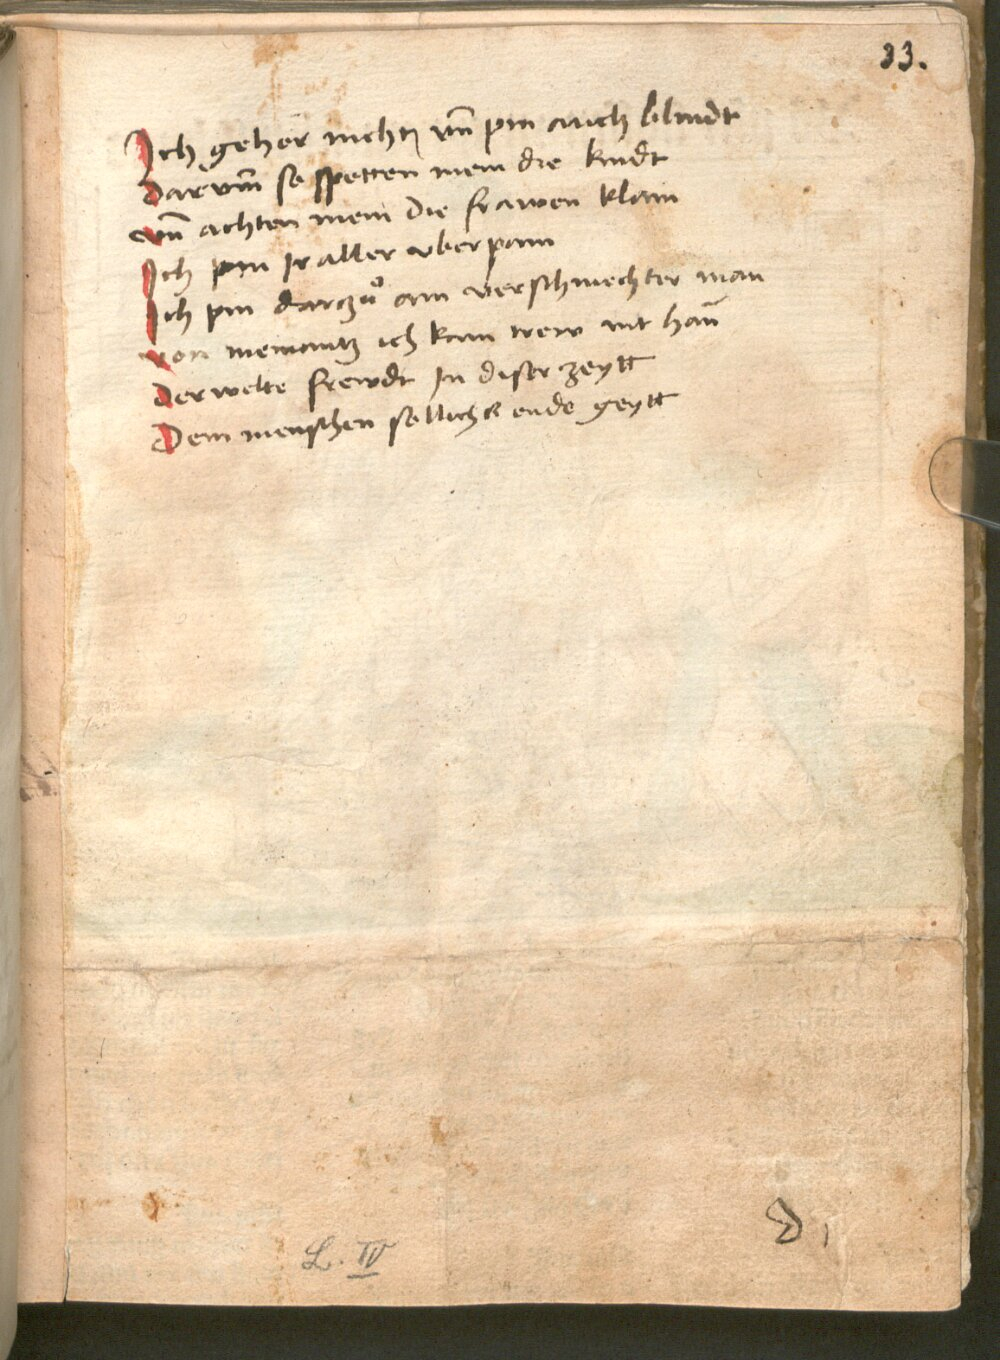 33.
Ich gehör nichtz vn̄ pin auch blindt
Darvm̄ so spotten mein die kindt
vn̄ achten mein die frawen klain
Ich pin ir aller vberpain
Ich pin darczů ain verschmechter man
von niemantz ich kain trew nit han̄
Der welte frewdt In diser zeytt
Dem menschen sollichs ende geytt
L. IV
D 1